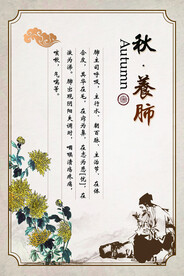 秋·養肺
Autumn
肺主司呼吸，主行水，朝百脉，主治节，在体
合皮，其华在毛，在窍为鼻，在志为悲(忧)，在
液为涕。肺出现阴阳失调时，咽喉清痛疼痛，
咳嗽，气喘等。